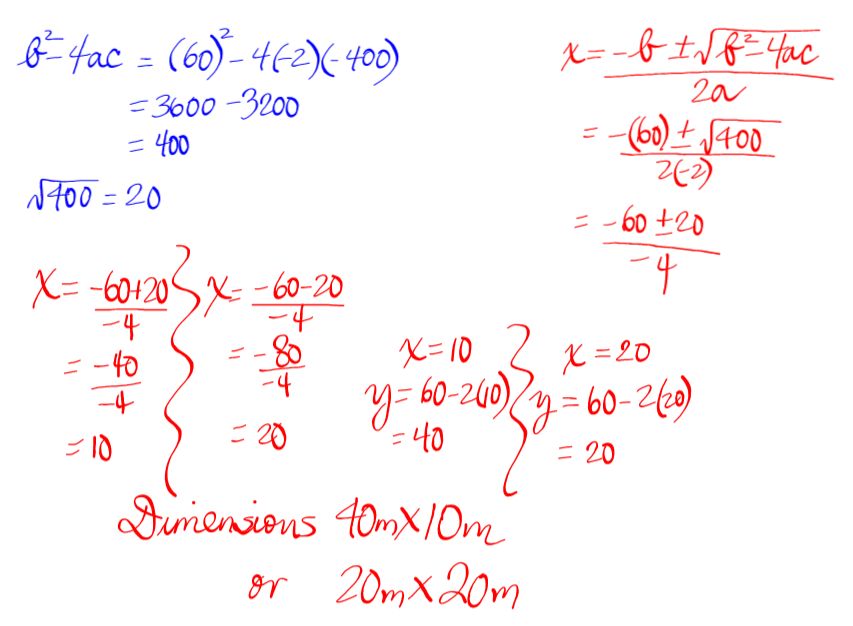 b²-4ac = (60)²-4(-2)(-400)
= 3600 -3200
= 400
√400 = 20
x = -b ± √b²-4ac
2a
= -(60) ± √400
2(-2)
= -60 ± 20
-4
x = -60+20
-4
= -40
-4
= 10
x = -60-20
-4
= -80
-4
= 20
x = 10
y = 60-2(10)
= 40
x = 20
y = 60-2(20)
= 20
Dimensions 40m x 10m
or 20m x 20m